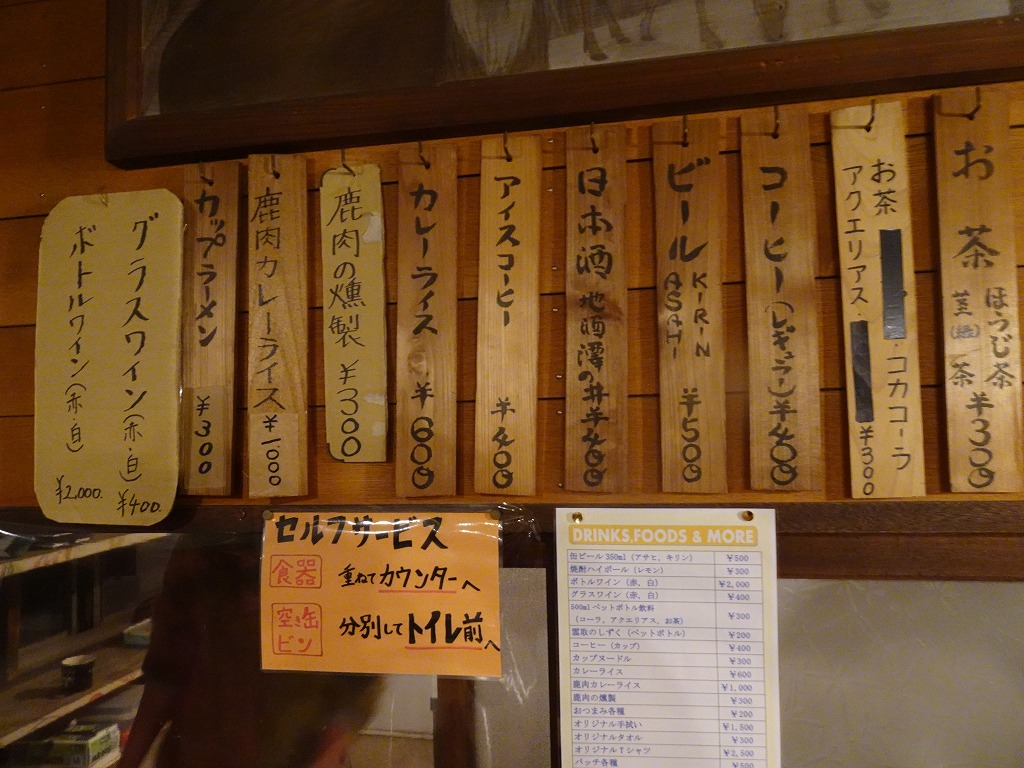 お茶
ほうじ茶
茎(緑)茶
¥300
お茶・コカコーラ
アクエリアス・
¥300
コーヒー(レギュラー)¥400
ビール
KIRIN
ASAHI
¥500
日本酒 地酒澤の井¥400
アイスコーヒー ¥400
カレーライス ¥600
鹿肉の燻製 ¥300
鹿肉カレーライス ¥1000
カップラーメン ¥300
グラスワイン(赤・白) ¥400.
ボトルワイン(赤・白) ¥2,000.
セルフサービス
食器 重ねてカウンターへ
空き缶
ビン
分別してトイレ前へ
DRINKS,FOODS & MORE
缶ビール350ml(アサヒ、キリン) ¥500
焼酎ハイボール(レモン) ¥300
ボトルワイン(赤、白) ¥2,000
グラスワイン(赤、白) ¥400
500mlペットボトル飲料
(コーラ、アクエリアス、お茶) ¥300
雲取のしずく(ペットボトル) ¥200
コーヒー(カップ) ¥400
カップヌードル ¥300
カレーライス ¥600
鹿肉カレーライス ¥1,000
鹿肉の燻製 ¥300
おつまみ各種 ¥200
オリジナル手拭い ¥1,500
オリジナルタオル ¥300
オリジナルTシャツ ¥2,500
バッチ各種 ¥500